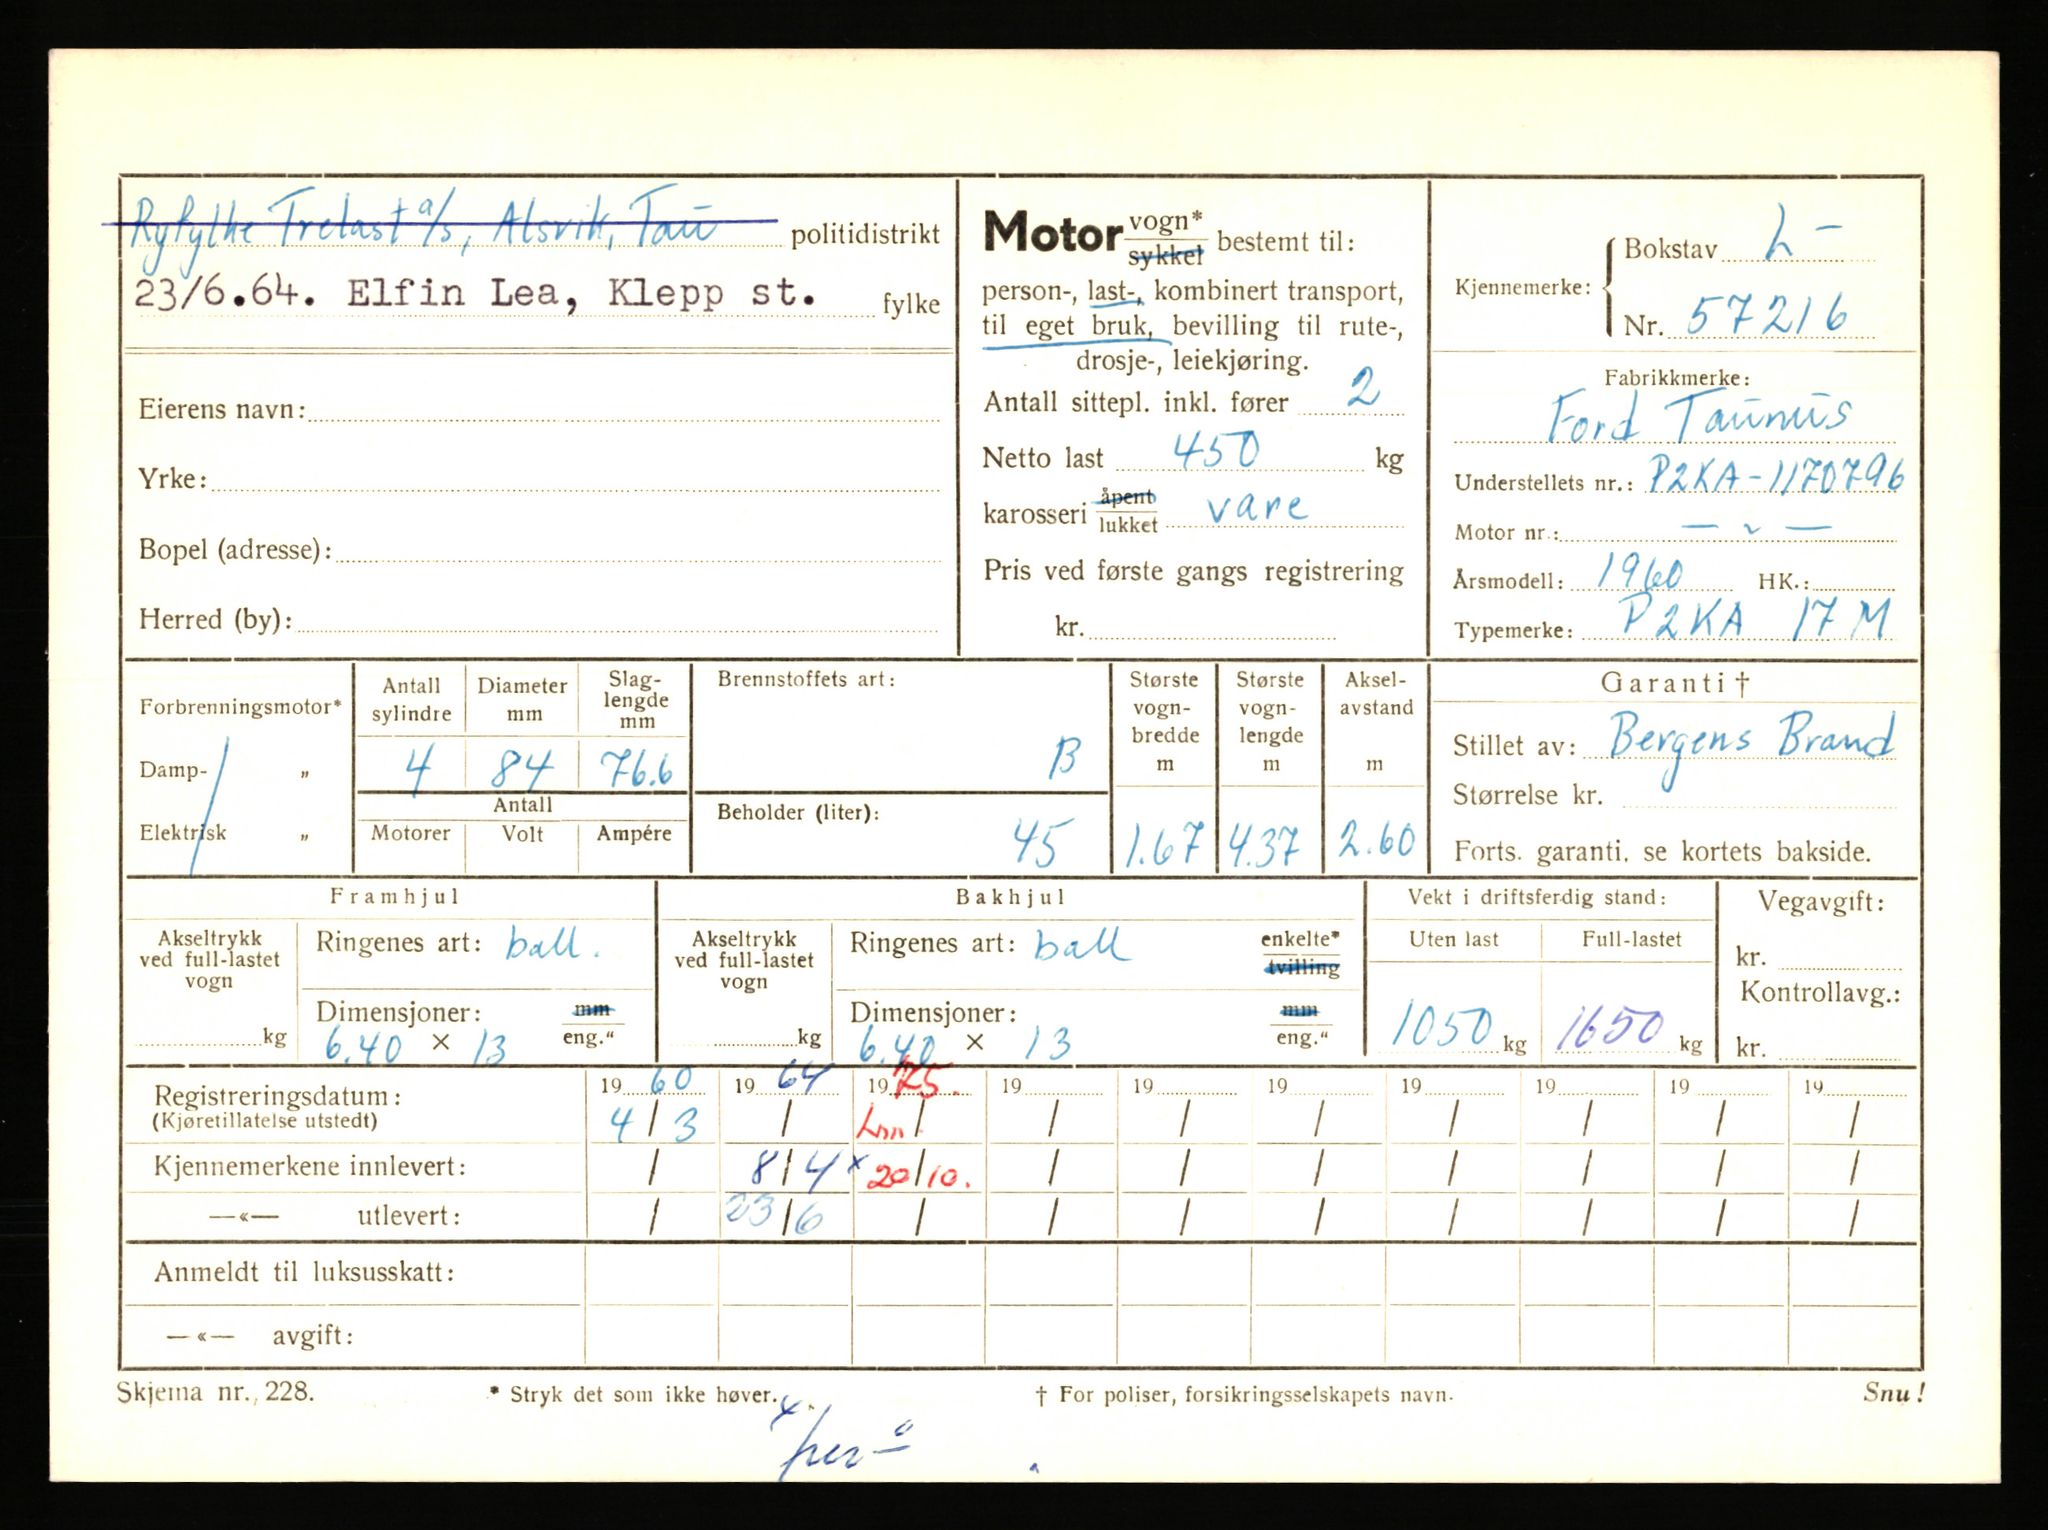 Ryfylke Trelast a/s, Alsvik, Tau politidistrikt
23/6.64. Elfin Lea, Klepp st. fylke
Eierens navn:
Yrke:
Bopel (adresse):
Herred (by):
Motor vogn* sykkel bestemt til:
person-, last-, kombinert transport,
til eget bruk, bevilling til rute-,
drosje-, leiekjøring.
Antall sittepl. inkl. fører 2
Netto last 450 kg
karosseri åpent lukket vare
Pris ved første gangs registrering
kr.
Kjennemerke: Bokstav L-
Nr. 57216
Fabrikkmerke:
Ford Taunus
Understellets nr.: P2KA-1170796
Motor nr.: — „ —
Årsmodell: 1960 HK.:
Typemerke: P2KA 17M
Forbrenningsmotor*
Damp- „
Elektrisk „
Antall sylindre
Diameter mm
Slag-
lengde
mm
4 84 76.6
Antall
Motorer Volt Ampére
Brennstoffets art:
B
Beholder (liter):
45
Største
vogn-
bredde
m
1.67
Største
vogn-
lengde
m
4.37
Aksel-
avstand
m
2.60
Garanti †
Stillet av: Bergens Brand
Størrelse kr.
Forts. garanti. se kortets bakside.
Framhjul
Akseltrykk
ved full-lastet
vogn
kg
Ringenes art: ball.
Dimensjoner: mm
6.40 × 13 eng."
Bakhjul
Akseltrykk
ved full-lastet
vogn
kg
Ringenes art: ball enkelte* tvilling
Dimensjoner: mm
6.40 × 13 eng."
Vekt i driftsferdig stand:
Uten last Full-lastet
1050 kg 1650 kg
Vegavgift:
kr.
Kontrollavg.:
kr.
Registreringsdatum: 19 60 19 64 19 75. 19 19 19 19 19 19 19
(Kjøretillatelse utstedt) 4/3 / / / / / / / / /
Kjennemerkene innlevert: / 8/4 x 20/10. / / / / / / /
—«— utlevert: / 23/6 / / / / / / / /
Anmeldt til luksusskatt:
—«— avgift:
Skjema nr. 228. * Stryk det som ikke høver. † For poliser, forsikringsselskapets navn. Snu!
x